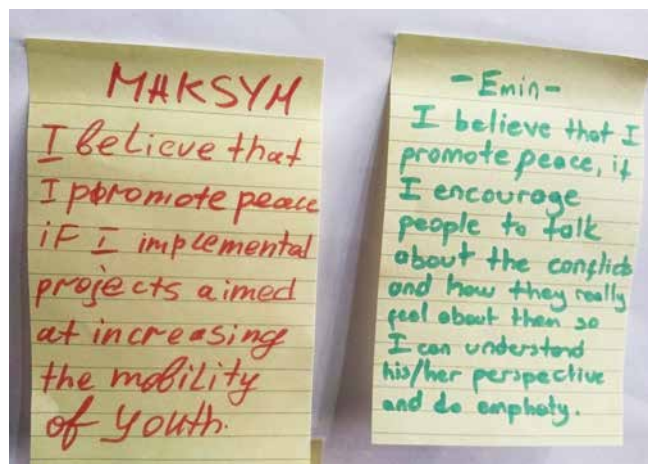 MAKSYM
I believe that
I poromote peace
if I implemental
projects aimed
at increasing
the mobility
of Youth.
-Emin-
I believe that I
promote peace, if
I encourage
people to talk
about the conflicts
and how they really
feel about them so
I can understand
his/her perspective
and do emphaty.